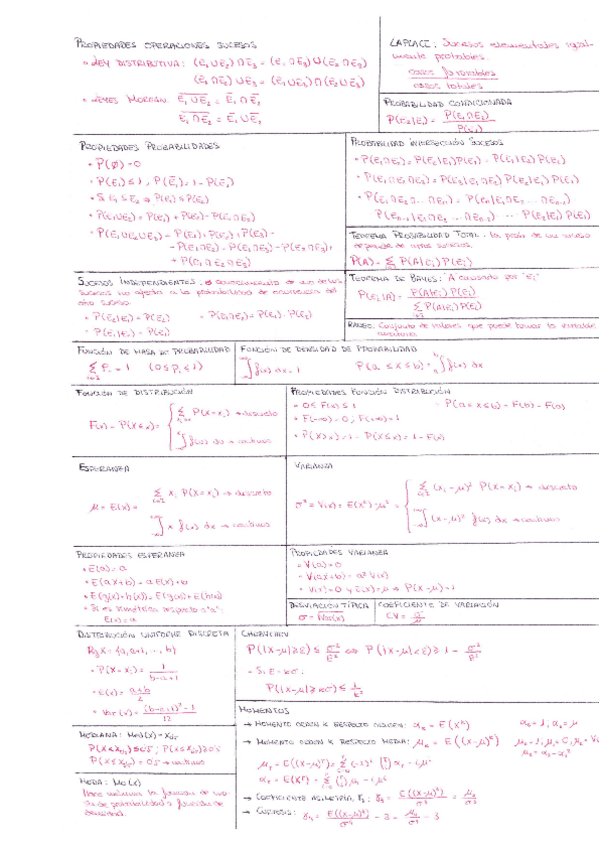 PROPIEDADES OPERACIONES SUCESOS
• LEY DISTRIBUTIVA: (E₁∪E₂)∩E₃ = (E₁∩E₃)∪(E₂∩E₃)
(E₁∩E₂)∪E₃ = (E₁∪E₃)∩(E₂∪E₃)
• LEYES MORGAN: E̅₁̅∪̅E̅₂̅ = E̅₁∩E̅₂
E̅₁̅∩̅E̅₂̅ = E̅₁∪E̅₂
LAPLACE: Sucesos elementales igual-
mente probables.
casos favorables
casos totales
PROBABILIDAD CONDICIONADA
P(E₂|E₁) = P(E₁∩E₂)
P(E₁)
PROPIEDADES PROBABILIDADES
• P(∅) = 0
• P(E₁) ≤ 1, P(E̅₁) = 1 - P(E₁)
• Si E₁ ⊆ E₂ ⇒ P(E₁) ≤ P(E₂)
• P(E₁∪E₂) = P(E₁) + P(E₂) - P(E₁∩E₂)
• P(E₁∪E₂∪E₃) = P(E₁) + P(E₂) + P(E₃) -
- P(E₁∩E₂) - P(E₁∩E₃) - P(E₂∩E₃) +
+ P(E₁∩E₂∩E₃)
PROBABILIDAD INTERSECCIÓN SUCESOS
• P(E₁∩E₂) = P(E₂|E₁)P(E₁) = P(E₁|E₂)P(E₂)
• P(E₁∩E₂∩E₃) = P(E₃|E₁∩E₂)P(E₂|E₁)P(E₁)
• P(E₁∩E₂∩...∩Eₙ) = P(Eₙ|E₁∩E₂...∩Eₙ₋₁)
P(Eₙ₋₁|E₁∩E₂...∩Eₙ₋₂) ... P(E₂|E₁)P(E₁)
TEOREMA PROBABILIDAD TOTAL: La prob. de un suceso
depende de otros sucesos.
P(A) = Σ P(A|Eᵢ)P(Eᵢ)
SUCESOS INDEPENDIENTES: el conocimiento de uno de los
sucesos no afecta a la probabilidad de ocurrencia del
otro suceso
• P(E₂|E₁) = P(E₂) • P(E₁∩E₂) = P(E₁)·P(E₂)
• P(E₁|E₂) = P(E₁)
TEOREMA DE BAYES: "A causado por "Eᵢ"
P(Eᵢ|A) = P(A|Eᵢ)P(Eᵢ)
Σ P(A|Eᵢ)P(Eᵢ)
RANGO: Conjunto de valores que puede tomar la variable
aleatoria.
FUNCIÓN DE MASA DE PROBABILIDAD
Σ Pᵢ = 1 (0 ≤ Pᵢ ≤ 1)
FUNCIÓN DE DENSIDAD DE PROBABILIDAD
∫ f(x) dx = 1 P(a ≤ X ≤ b) = ∫ f(x) dx
FUNCIÓN DE DISTRIBUCIÓN
F(x) = P(X ≤ x) =
Σ P(X = xᵢ) → discreto
∫ f(x) dx → continuo
PROPIEDADES FUNCIÓN DISTRIBUCIÓN
• 0 ≤ F(x) ≤ 1 • P(a < X ≤ b) = F(b) - F(a)
• F(-∞) = 0; F(+∞) = 1
• P(X > x) = 1 - P(X ≤ x) = 1 - F(x)
ESPERANZA
μ = E(x) =
Σ xᵢ P(X = xᵢ) → discreto
∫ x f(x) dx → continuo
VARIANZA
σ² = V(x) = E(X²) - μ² =
Σ (xᵢ - μ)² P(X = xᵢ) → discreto
∫ (x - μ)² f(x) dx → continuo
PROPIEDADES ESPERANZA
• E(a) = a
• E(aX+b) = aE(x)+b
• E(g(x)+h(x)) = E(g(x))+E(h(x))
• Si es simétrica respecto a "a":
E(x) = a
PROPIEDADES VARIANZA
• V(a) = 0
• V(ax+b) = a² V(x)
• V(x) = 0 y E(x) = μ ⇒ P(X = μ) = 1
DESVIACIÓN TÍPICA
σ = √Var(x)
COEFICIENTE DE VARIACIÓN
CV = σ/μ
DISTRIBUCIÓN UNIFORME DISCRETA
Rgx = {a, a+1, ..., b}
• P(X = xᵢ) = 1/(b-a+1)
• E(x) = (a+b)/2
• Var(x) = ((b-a+1)² - 1)/12
CHEBYCHEV
P(|X-μ| ≥ ε) ≤ σ²/ε² ⇔ P(|X-μ| < ε) ≥ 1 - σ²/ε²
• Si ε = kσ:
P(|X-μ| ≥ kσ) ≤ 1/k²
MEDIANA: Med(x) = x₀.₅
MODA: Mo(x)
Hace máxima la función de ma-
sa de probabilidad o función de
densidad.
MOMENTOS
→ MOMENTO ORDEN K RESPECTO ORIGEN: αₖ = E(Xᵏ) α₀ = 1; α₁ = μ
→ MOMENTO ORDEN K RESPECTO MEDIA: μₖ = E((X-μ)ᵏ)
→ COEFICIENTE ASIMETRÍA
→ CURTOSIS: γ₄ = E((X-μ)⁴)/σ⁴ - 3 = μ₄/σ⁴ - 3